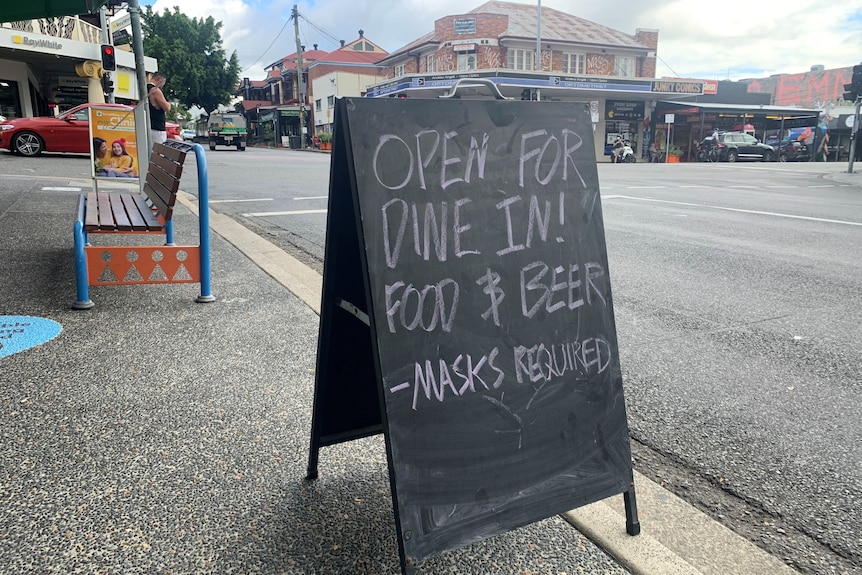 OPEN FOR
DINE IN!
FOOD & BEER
-MASKS REQUIRED
RayWhite
JUNKY COMICS